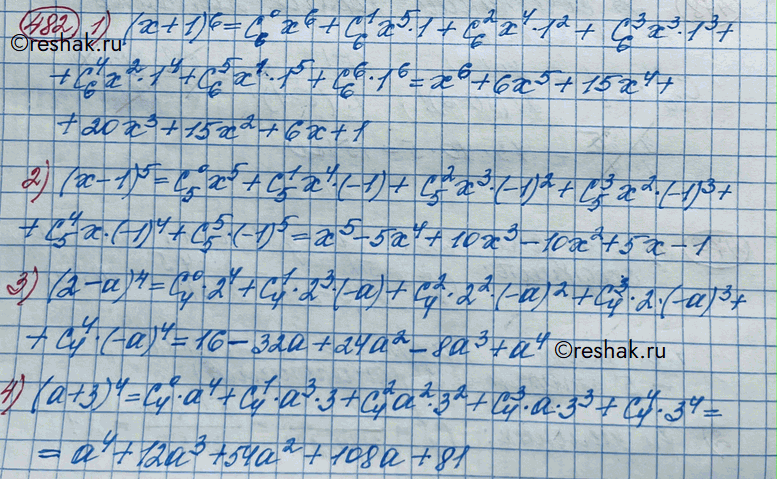 482 1) (x+1)⁶=C₆⁰x⁶+C₆¹x⁵·1+C₆²x⁴·1²+C₆³x³·1³+
©reshak.ru
+C₆⁴x²·1⁴+C₆⁵x¹·1⁵+C₆⁶·1⁶=x⁶+6x⁵+15x⁴+
+20x³+15x²+6x+1
2) (x-1)⁵=C₅⁰x⁵+C₅¹x⁴·(-1)+C₅²x³·(-1)²+C₅³x²·(-1)³+
+C₅⁴x·(-1)⁴+C₅⁵·(-1)⁵=x⁵-5x⁴+10x³-10x²+5x-1
3) (2-a)⁴=C₄⁰·2⁴+C₄¹·2³·(-a)+C₄²·2²·(-a)²+C₄³·2·(-a)³+
+C₄⁴·(-a)⁴=16-32a+24a²-8a³+a⁴
©reshak.ru
4) (a+3)⁴=C₄⁰·a⁴+C₄¹·a³·3+C₄²a²·3²+C₄³·a·3³+C₄⁴·3⁴=
=a⁴+12a³+54a²+108a+81